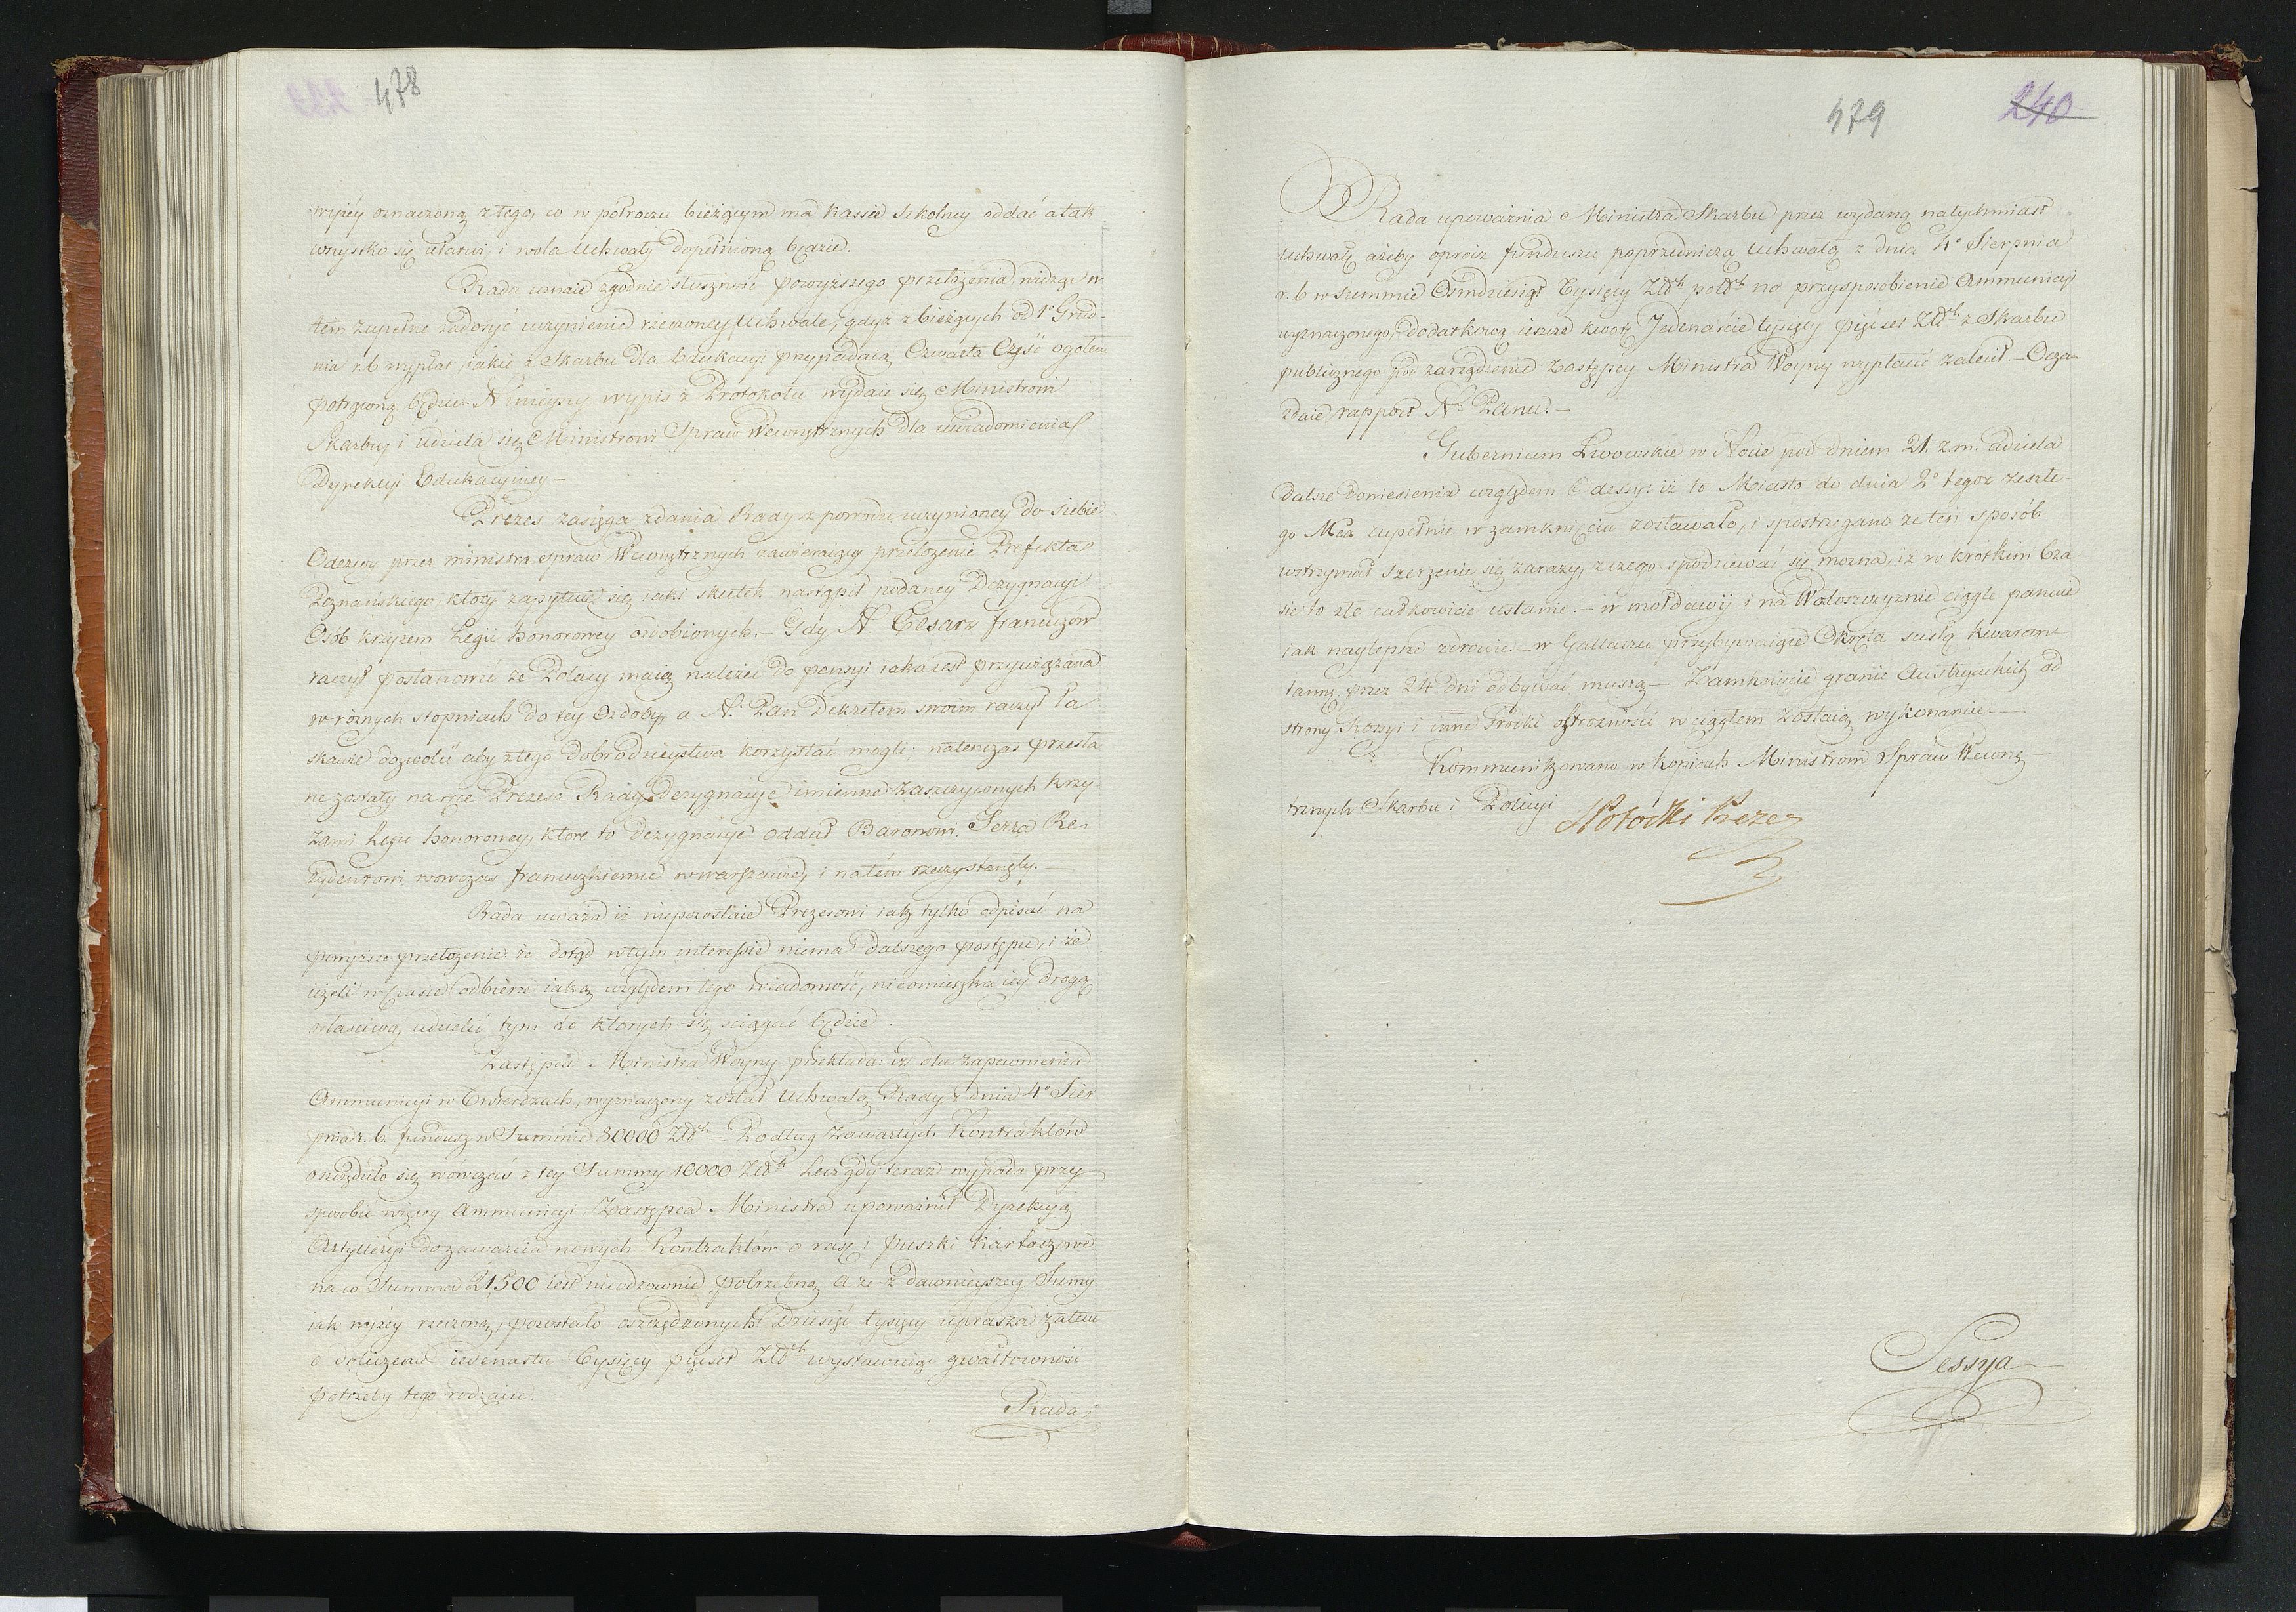 478
wyżey oznaczoną z tego, co w półroczu bieżącym ma kassie szkolney oddać a tak
wszystko się ułatwi i wola Uchwały dopełnioną będzie.
Rada uznaie zgodnie słuszność powyższego przełożenia widząc w
tém zupełne zadosyć uczynienie rzeczoney Uchwale, gdyż z bieżących od 1º Grud-
nia r.b. wypłat, iakie z Skarbu dla Edukacyi przypadaią Czwarta Część ogółem
potrąconą będzie. Ninieyszy wypis z Protokołu wydaie się Ministrowi
Skarbu i udziela się Ministrowi Spraw Wewnętrznych dla uwiadomienia
Dyrekcyi Edukacyiney —
Prezes zasięga zdania Rady z powodu uczynioney do siebie
Odezwy przez ministra spraw Wewnętrznych zawieraiącey przełożenie Prefekta
Poznańskiego, który zapytuie się iaki skutek nastąpił podaney Dezygnacyi
Osób krzyżem Legii honorowey ozdobionych. — Gdy N. Cesarz francuzów
raczył postanowić że Polacy maią należeć do pensyi iaka iest przywiązana
w różnych stopniach do tey Ozdoby, a N. Pan Dekretem swoim raczył ła
skawie dozwolić aby z tego dobrodzieystwa korzystać mogli; natenczas przesła
ne zostały na ręce Prezesa Rady Dezygnacye imienne zaszczyconych krzy-
żami Legii honorowey, które to dezygnacye oddał Baronowi Serra Re-
zydentowi wowczas francuzkiemu w warszawie, i na tém rzeczy stanęły.
Rada uważa iż niepozostaie Prezesowi iak tylko odpisać na
powyższe przełożenie: że dotąd w tym interessie niema dalszego postępu, i że
ieżeli w czasie odbierze iaką względem tego wiadomość, nieomieszka iey drogą
właściwą udzielić tym do ktorych się sciągać będzie.
Zastępca Ministra Woyny przekłada: iż dla zapewnienia
Ammunicyi w Twierdzach, wyznaczony został Uchwałą Rady z dnia 4º Sier
pnia r.b. fundusz w Summie 80000 Złłch — Podług zawartych Kontraktów
oszczędziło się wowczas z tey Summy 10000 Złłch Lecz gdy teraz wypada przy-
sposobić więcey Ammunicyi Zastępca Ministra upoważnił Dyrekcyą
Artylleryi do zawarcia nowych Kontraktów o rasę i puszki kartaczowe
na co Summa 21500 iest nieodzownie potrzebną, a że z dawnieyszey Sumy
iak wyżey rzeczono, pozostało oszczędzonych Dziesięć tysięcy uprasza zatem
o doliczenie iedenastu Tysięcy pięćset Złłch wystawuiąc gwałtowność
potrzeby tego rodzaiu.
Rada
479
240
Rada upoważnia Ministra Skarbu przez wydaną natychmiast
Uchwałę ażeby oprócz funduszu poprzedniczą Uchwałą z dnia 4º Sierpnia
r. b w summie Osmdziesiąt Tysięcy Złłch polłch na przysposobienie Ammunicyi
wyznaczonego, dodatkową ieszcze kwotę Jedenaście tysięcy pięćset Złłch z Skarbu
publicznego pod zarządzenie Zastępcy Ministra Woyny wypłacić zalecił. —
zdaie rapport N. Panu. —
Gubernium Lwowskie w Nocie pod dniem 21. z.m. udziela
dalsze doniesienia względem Odessy: iż to Miasto do dnia 2º tegoz zeszłe-
go Mca zupełnie w zamknięciu zostawało, i spostrzegano że ten sposób
wstrzymał szerzenie się zarazy, z czego spodziewać się można, iż w krótkim Cza
sie to złe całkowicie ustanie. — w mołdawii i na Wołoszczyznie ciągle panuie
iak naylepsze zdrowie. — w Gallaczu przybywaiące Okręta scisłą kwaran-
tannę przez 24 dni odbywać muszą — Zamknięcie granic Austryackich od
strony Rossyi i inne środki ostrożności w ciągłem zostaią wykonaniu —
Kommunikowano w kopiach Ministrom Spraw Wewnę-
trznych Skarbu i Policyi
Potocki Prezes
Sessya